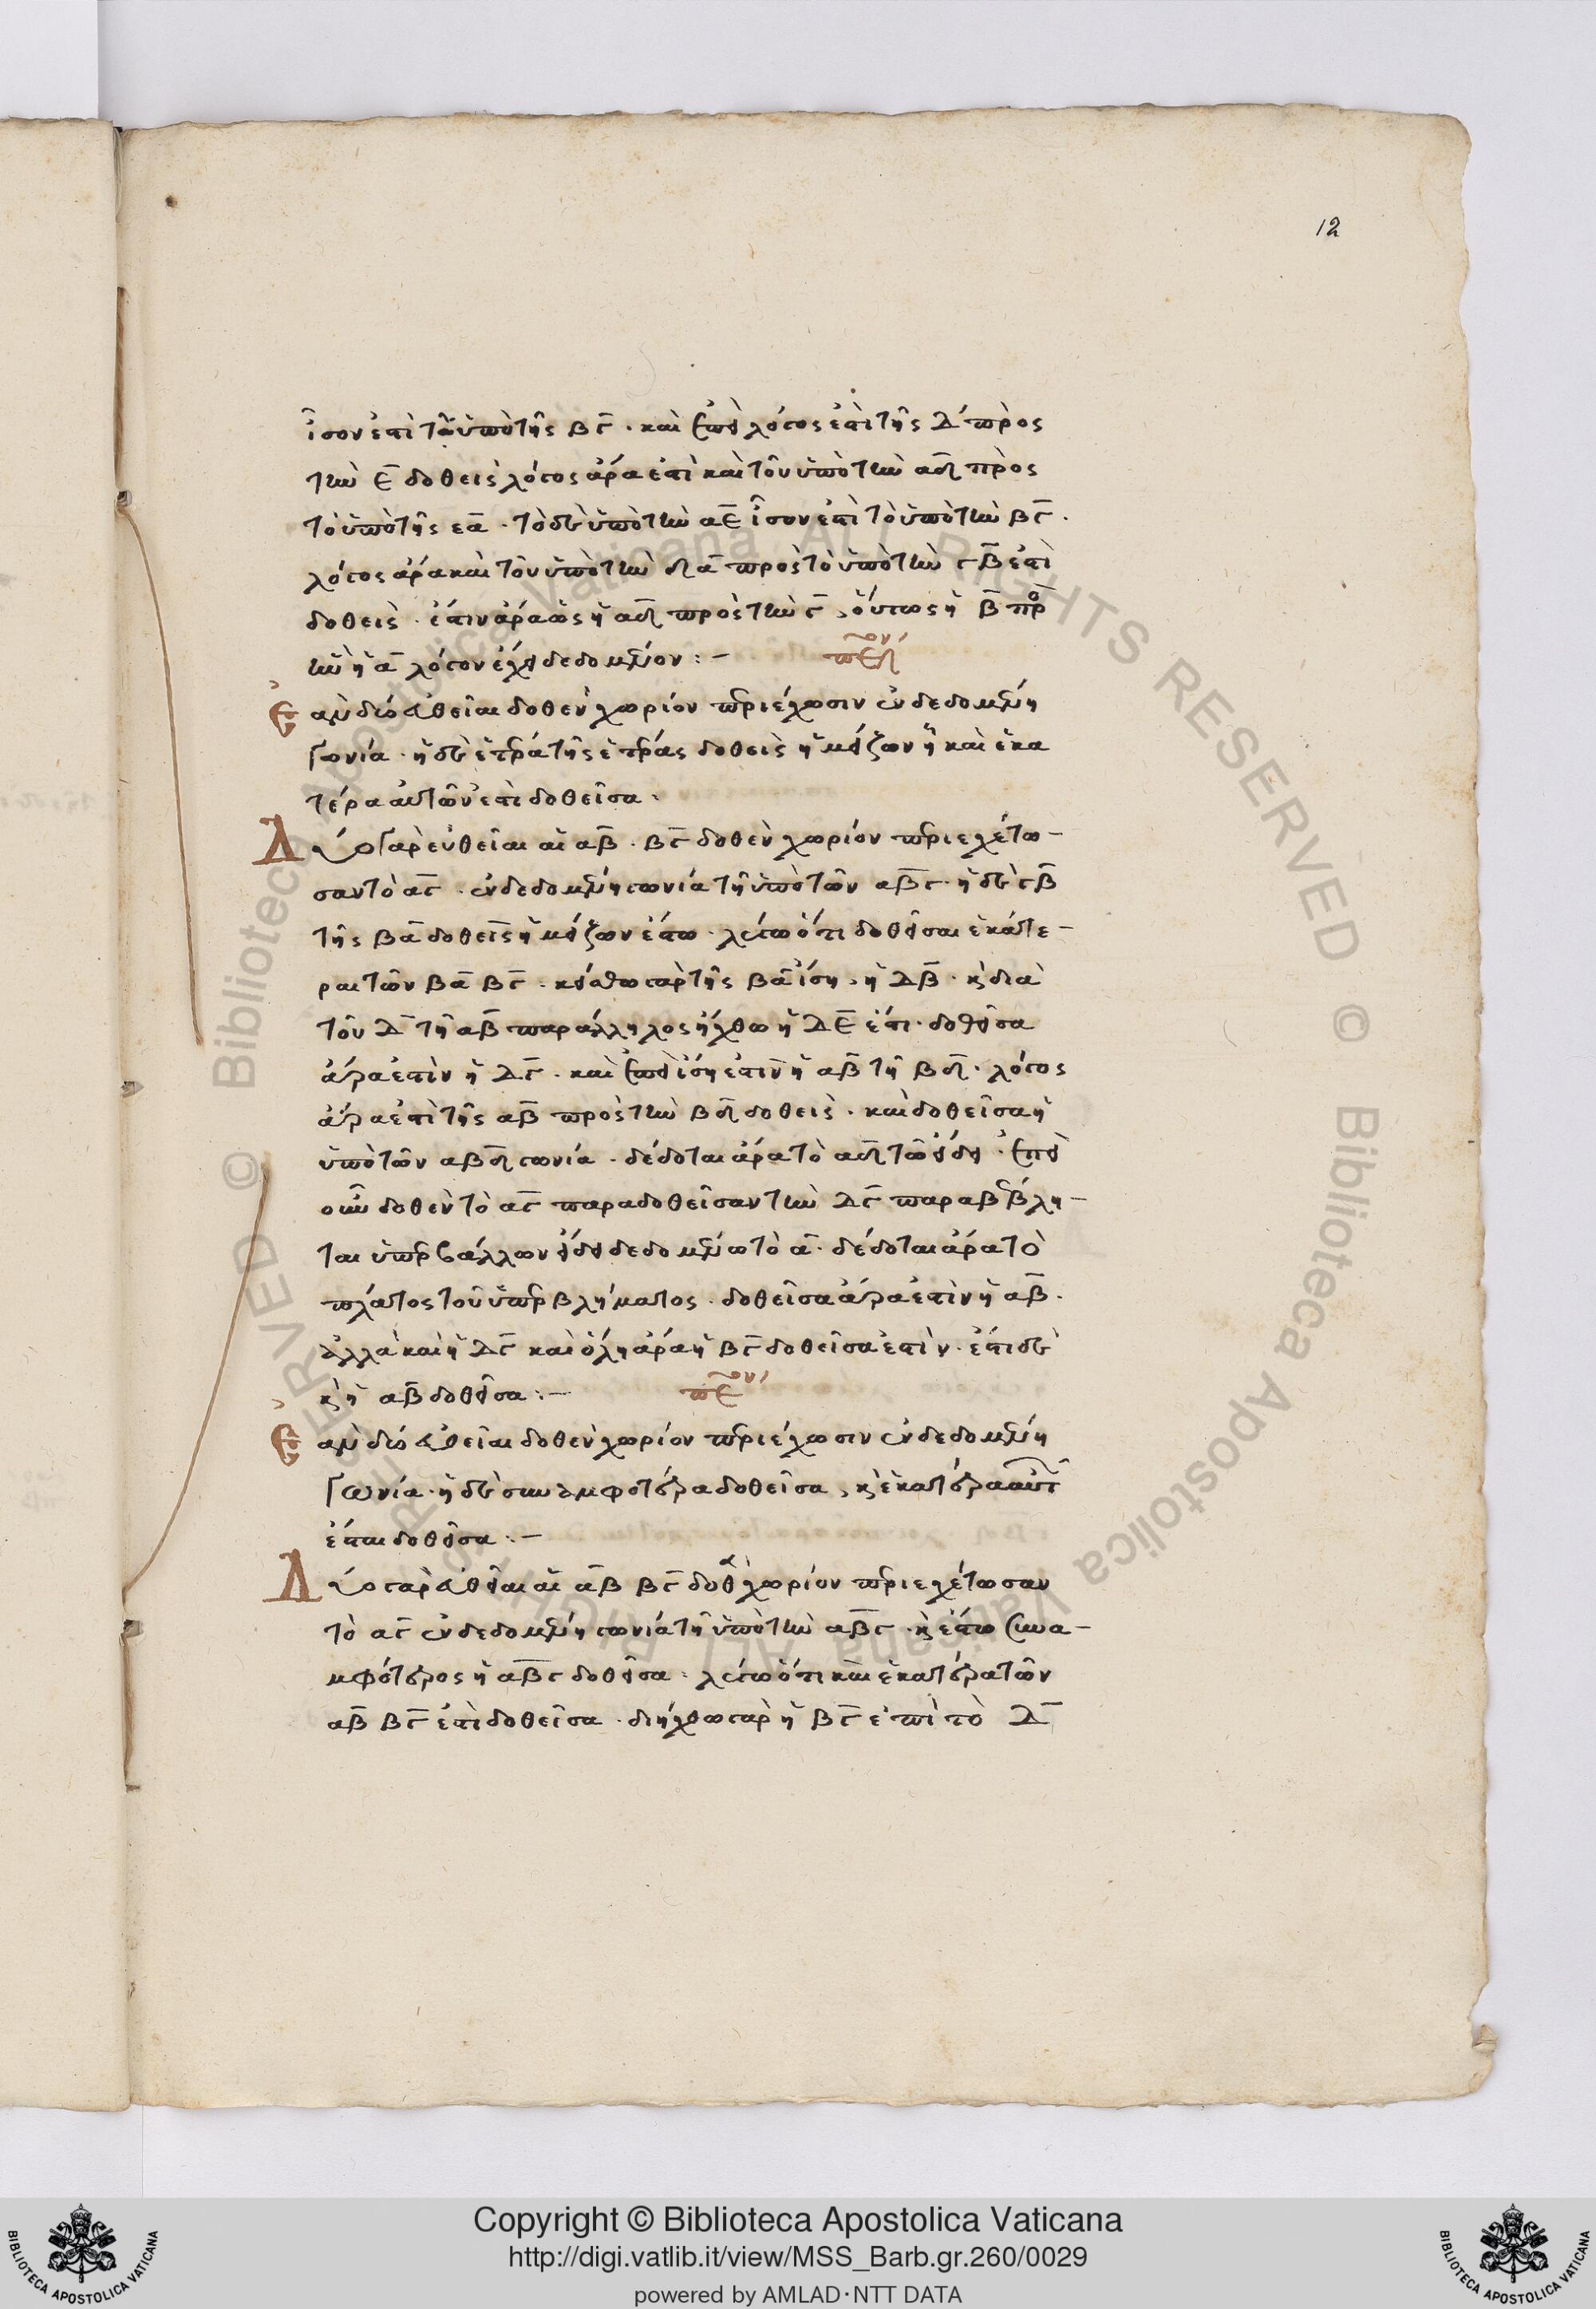 12
ἴσον ἐστὶ τῶ ὑπὸ τῆς βγ · καὶ ἐπεὶ λόγος ἐστὶ τῆς δ πρὸς
τὴν ε δοθεὶς λόγος ἄρα ἐστὶ καὶ τοῦ ὑπὸ τῶν αδ πρὸς
τὸ ὑπὸ τῆς εα · τὸ δὲ ὑπὸ τῶν αε ἴσον ἐστὶ τὸ ὑπὸ τῶν βγ ·
λόγος ἄρα καὶ τοῦ ὑπὸ τῶν δα πρὸς τὸ ὑπὸ τῶν γβ ἐστὶ
δοθεὶς · ἔστιν ἄρα ὡς ἡ αδ πρὸς τὴν γ, οὕτως ἡ β πρ
ἡ α λόγον ἔχει δεδομένον :–
ἐὰν δύο εὐθεῖαι δοθὲν χωρίον περιέχωσιν ἐν δεδομένη
γωνία · ἡ δὲ ἑτέρα τῆς ἑτέρας δοθεὶς ἡ μείζων ἢ καὶ ἑκα
τέρα αὐτῶν ἐστὶ δοθεῖσα ·
Δύο γὰρ εὐθεῖαι αἱ αβ · βγ δοθὲν χωρίον περιεχέτω–
σαν τὸ αγ · ἐν δεδομένη γωνία τῆ ὑπὸ τῶν αβγ · ἡ δὲ γβ
τῆς βα δοθεῖς ἡ μείζων ἔστω · λέγω ὅτι δοθεῖσαι ἑκάτε–
ραι τῶν βα βγ · κείσθω γὰρ τῆς βα ἴση · ἡ δβ · κ διὰ
τοῦ δ τῆ αβ παράλληλος ἤχθω ἡ δε ἐστι · δοθεῖσα
ἄρα ἐστὶν ἡ δγ · καὶ ἐπεὶ ἴση ἐστὶν ἡ αβ τῆ βδ · λόγος
ἄρα ἐστὶ τῆς αβ πρὸς τὴν βδ δοθεὶς · καὶ δοθεῖσα ἡ
ὑπὸ τῶν αβδ γωνία · δέδοται ἄρα τὸ αδ τῶ εἴδει · ἐπεὶ
οὖν δοθὲν τὸ αγ παρὰ δοθεῖσαν τὴν δγ παραβέβλη–
ται ὑπερβάλλων εἴδει δεδομένω τὸ α · δέδοται ἄρα τὸ
πλάτος τοῦ ὑπερβλήματος · δοθεῖσα ἄρα ἐστὶν ἡ αβ ·
ἀλλὰ καὶ ἡ δγ καὶ ὅλη ἄρα ἡ βγ δοθεῖσα ἐστὶν · ἔστι δὲ
κ ἡ αβ δοθεῖσα :–
ἐὰν δύο εὐθεῖαι δοθὲν χωρίον περιέχωσιν ἐν δεδομένη
γωνία · ἡ δὲ συναμφοτέρα δοθεῖσα, κ ἑκατέρα αὐτ
ἔσται δοθεῖσα :–
Δύο γὰρ εὐθεῖαι αἱ αβ βγ δοθ χωρίον περιεχέτωσαν
τὸ αγ ἐν δεδομένη γωνία τῆ ὑπὸ τῶν αβγ · κ ἔστω συνα–
μφότερος ἡ αβγ δοθεῖσα · λέγω ὅτι καὶ ἑκατέρα τῶν
αβ βγ ἐστὶ δοθεῖσα · διήχθω γὰρ ἡ βγ ἐπὶ τὸ δ
Copyright © Biblioteca Apostolica Vaticana
http://digi.vatlib.it/view/MSS_Barb.gr.260/0029
powered by AMLAD·NTT DATA